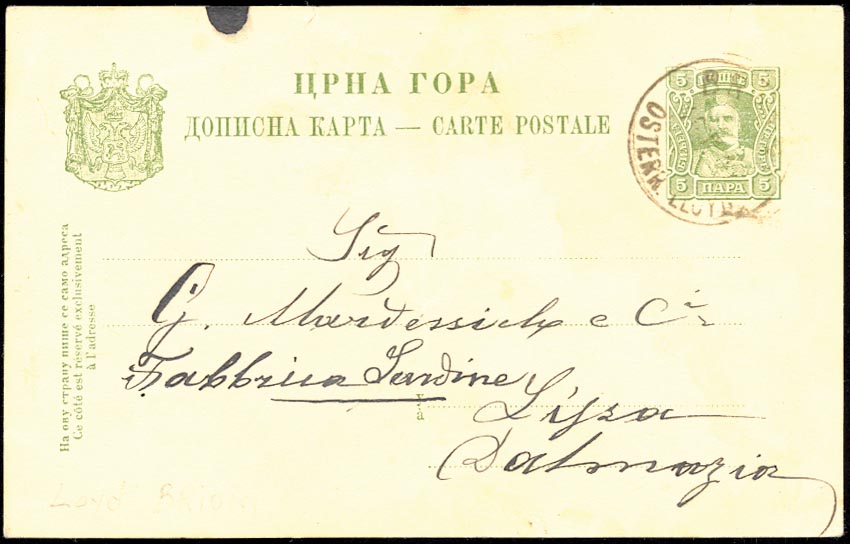 ЦРНА ГОРА
ДОПИСНА КАРТА — CARTE POSTALE
5 5
5 ПАРА 5
OSTERR. LLOYD
На ову страну пише се само адреса
Ce côté est réservé exclusivement
à l'adresse
Sig
G. Mardessich e Ci
Fabbrica Sardine
Lissa
Dalmazia